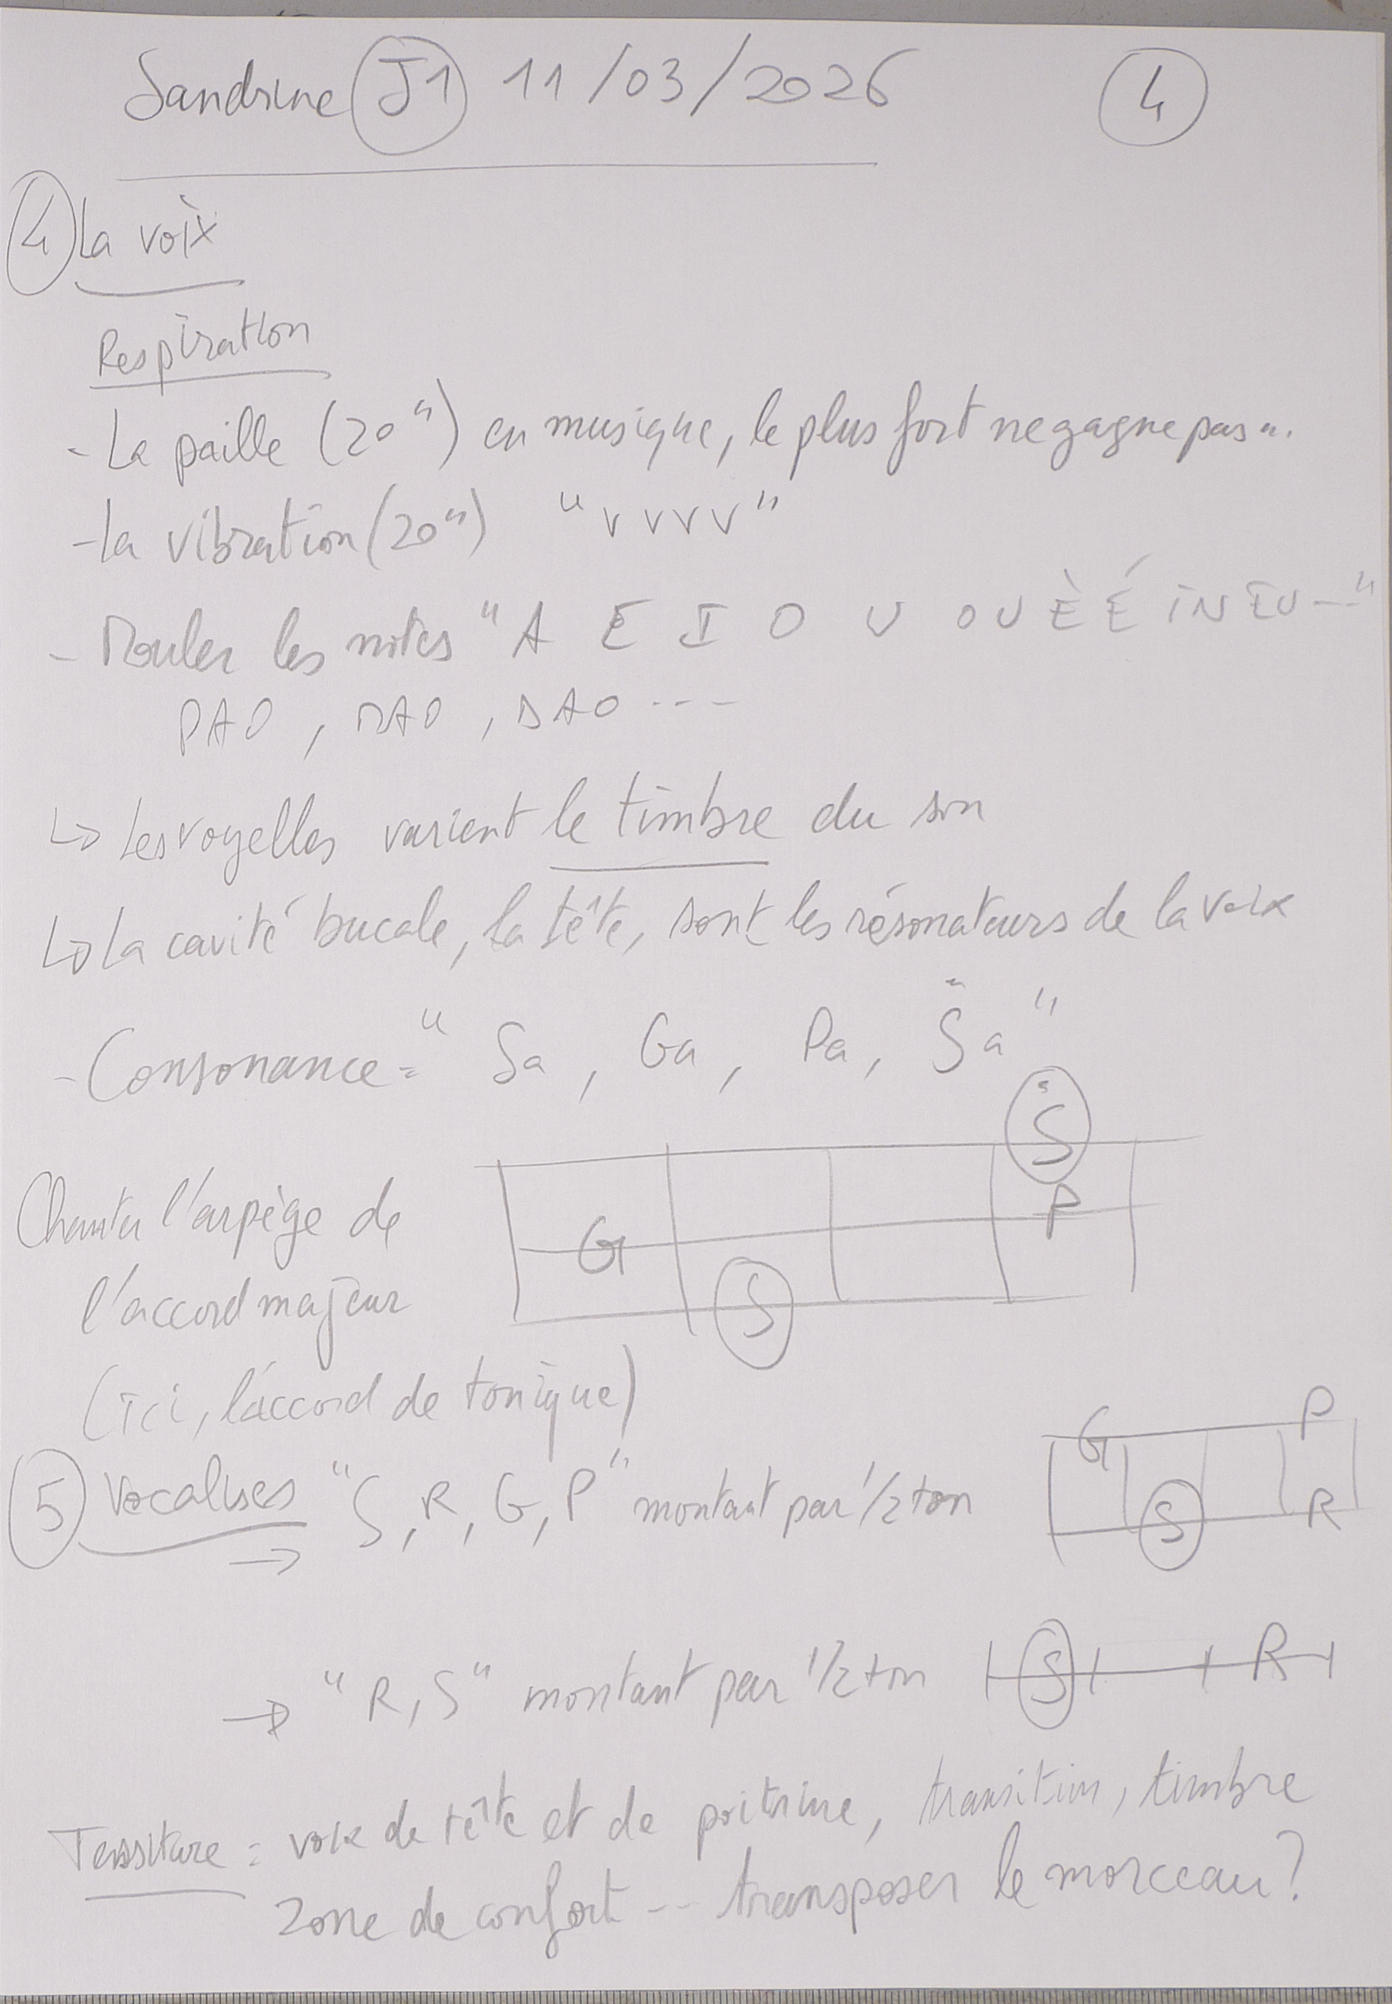 Sandrine J1 11/03/2026 4
4 La voix
Respiration
- La paille (20") en musique, le plus fort ne gagne pas ".
- la vibration (20") "vvvv"
- Rouler les notes "A E I O U OU È É IN EU ---"
PAO, RAO, DAO ---
↳ Les voyelles varient le timbre du son
↳ La cavité bucale, la tête, sont les résonateurs de la voix
- Consonance = "Sa, Ga, Pa, Ṡa"
Ṡ
P
G
S
Chanter l'arpège de
l'accord majeur
(ici, l'accord de tonique)
G P
5 Vocalises "S, R, G, P" montant par 1/2 ton
S R
→ "R, S" montant par 1/2 ton S R
Tessiture = voix de tête et de poitrine, transition, timbre
zone de confort -- transposer le morceau?